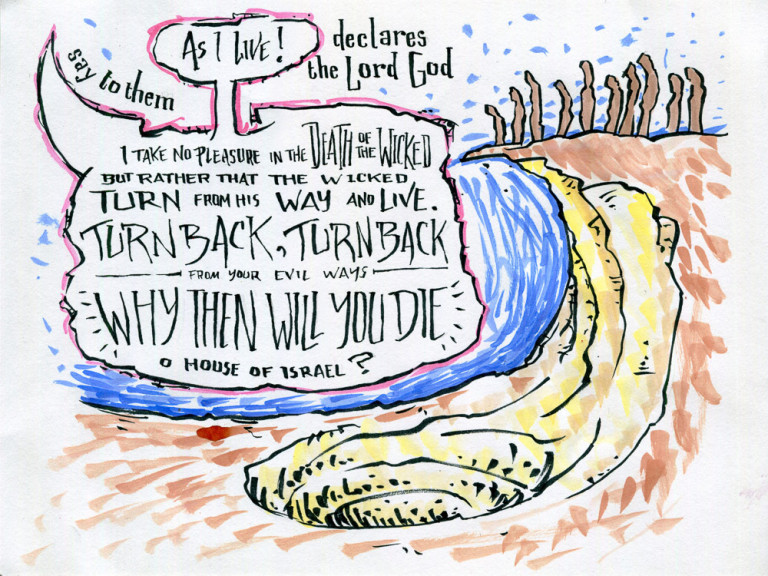 say to them
As I LIVE!
declares
the Lord God
I TAKE NO PLEASURE IN THE DEATH OF THE WICKED
BUT RATHER THAT THE WICKED
TURN FROM HIS WAY AND LIVE.
TURN BACK, TURN BACK
FROM YOUR EVIL WAYS
WHY THEN WILL YOU DIE
O HOUSE OF ISRAEL?